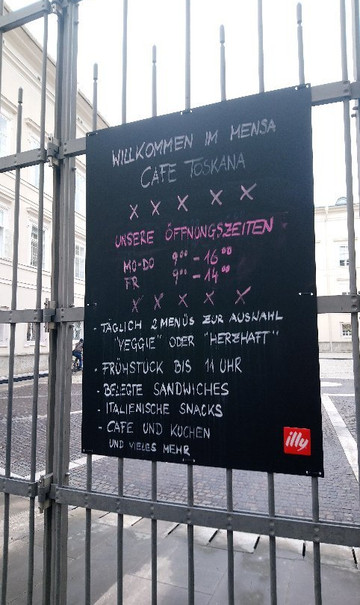 WILLKOMMEN IM MENSA
CAFE TOSKANA
x x x x x
UNSERE ÖFFNUNGSZEITEN
MO-DO 9⁰⁰ - 16⁰⁰
FR 9⁰⁰ - 14⁰⁰
x x x x x
- TÄGLICH 2 MENÜS ZUR AUSWAHL
"VEGGIE" ODER "HERZHAFT"
- FRÜHSTÜCK BIS 11 UHR
- BELEGTE SANDWICHES
- ITALIENISCHE SNACKS
- CAFE UND KUCHEN
UND VIELES MEHR
illy